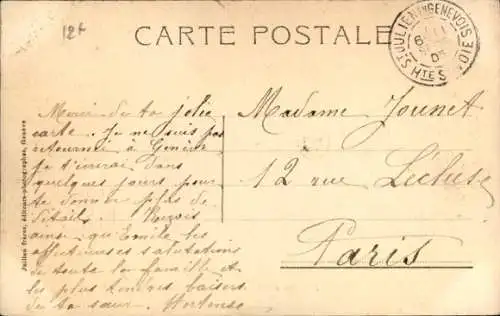 12f
CARTE POSTALE
ST JULIEN EN GENEVOIS
HTE SAVOIE
Jullien frères, éditeurs-photographes, Genève
Merci de ta jolie
carte. Je ne suis pas
retournée à Genève
je t'écrirai dans
quelques jours pour
te donner plus de
détails. Reçois
ainsi qu'Emile les
affectueuses salutations
de toute la famille et
les plus tendres baisers
de ta sœur. Hortense
Madame Jounet
12 rue Lécluse
Paris